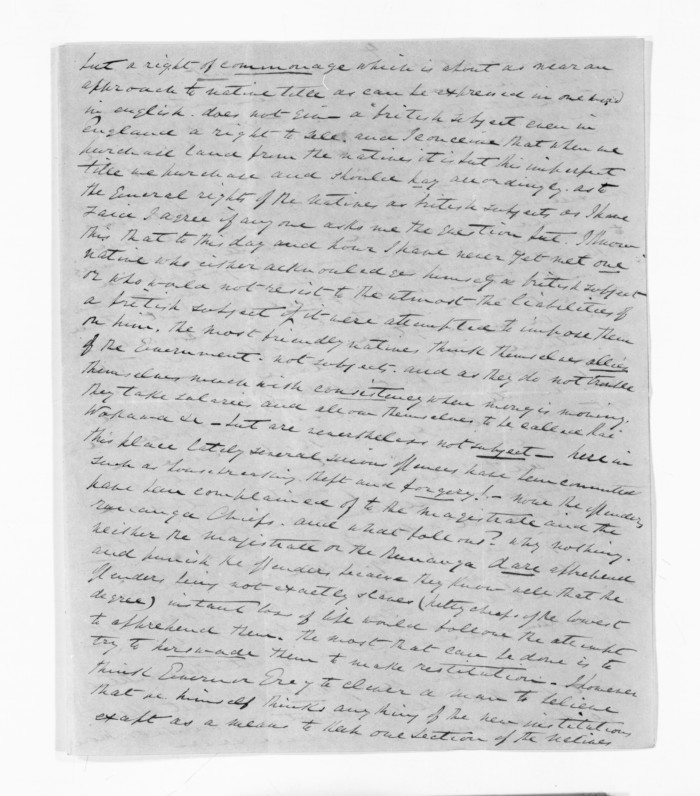 but a right of commonage which is about as near an
approach to native title as can be expressed in one word
in english. does not give a british subject even in
England a right to sell. and I conceive that when we
purchase land from the natives it is but this imperfect
title we purchase and should pay accordingly. as to
the General rights of the Natives as british subjects as I have
said I agree if any one asks me the question but. I know
this that to this day and hour I have never yet met one
native who either acknowledges himself a british subject
or who would not resist to the utmost the liabilities of
a british subject if it were attempted to impose them
on him. the most friendly natives think themselves allies
of the Government. not subjects. and as they do not trouble
themselves much with consistency when money is moving.
they take salaries and allow themselves to be called Kai
Wakawa &c - but are nevertheless not subject - here in
this place lately several serious offences have been committed
such as housebreaking theft and forgery! - now the offenders
have been complained of to the magistrate and the
runanga Chiefs. and what follows? why nothing.
neither the magistrate or the Runanga dare apprehend
and punish the offenders because they know well that the
offenders being not exactly slaves (petty chiefs of the lowest
degree) instant loss of life would follow the attempt
to apprehend them. the most that can be done is to
try to persuade them to make restitution. I however
think Governor Grey to clever a man to believe
that he himself thinks anything of the new institutions
except as a means to keep one section of the natives